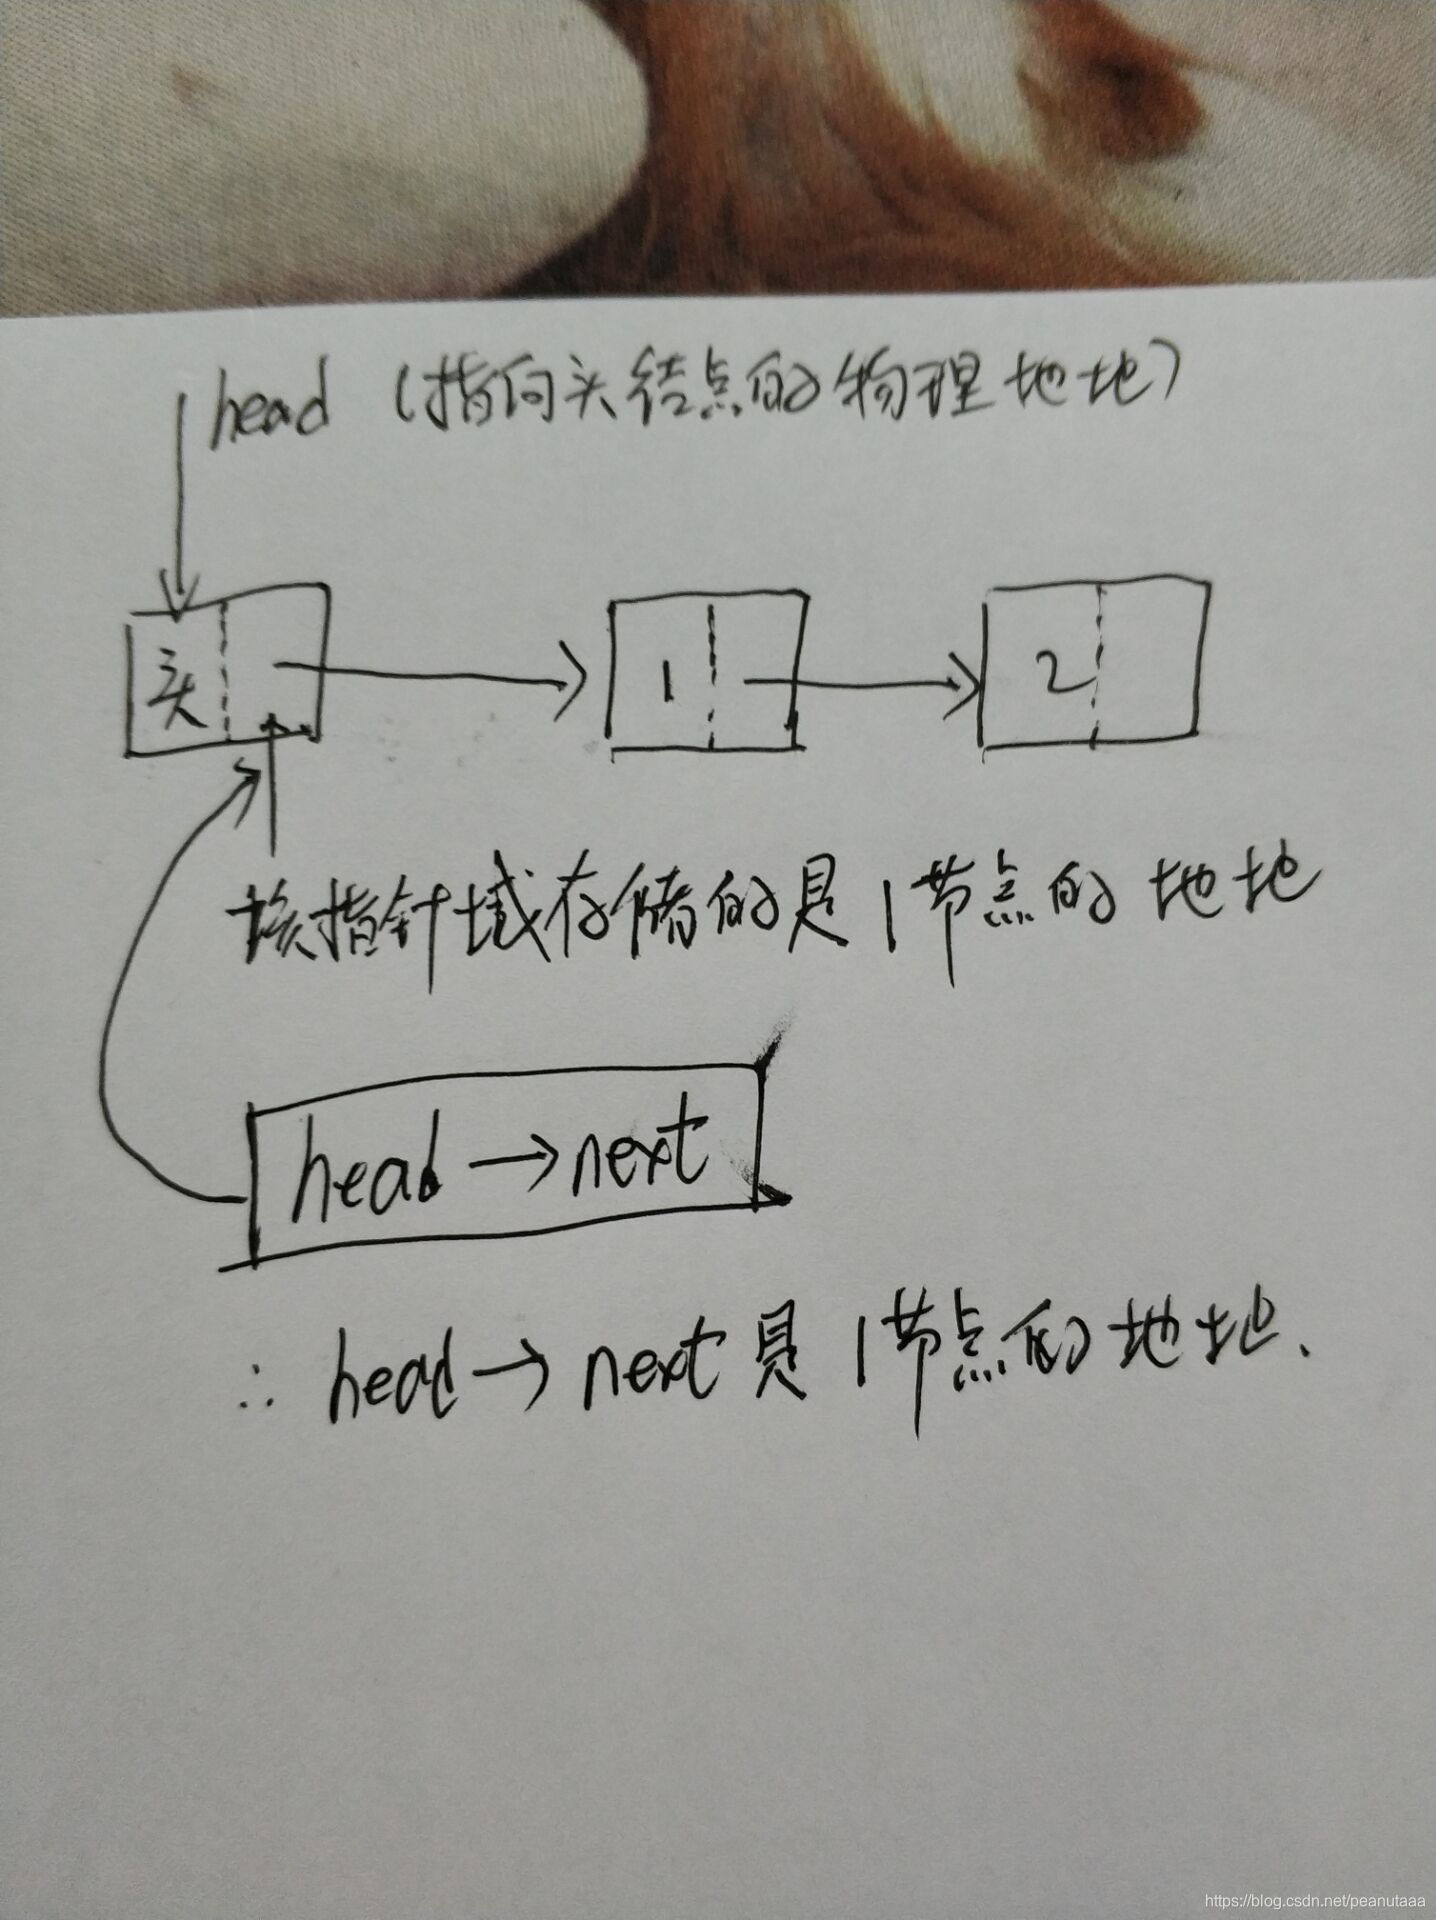 head (指向头结点的物理地址)
头 1 2
该指针域存储的是1节点的地址
head→next
∴ head→next是1节点的地址.
https://blog.csdn.net/peanutaaa